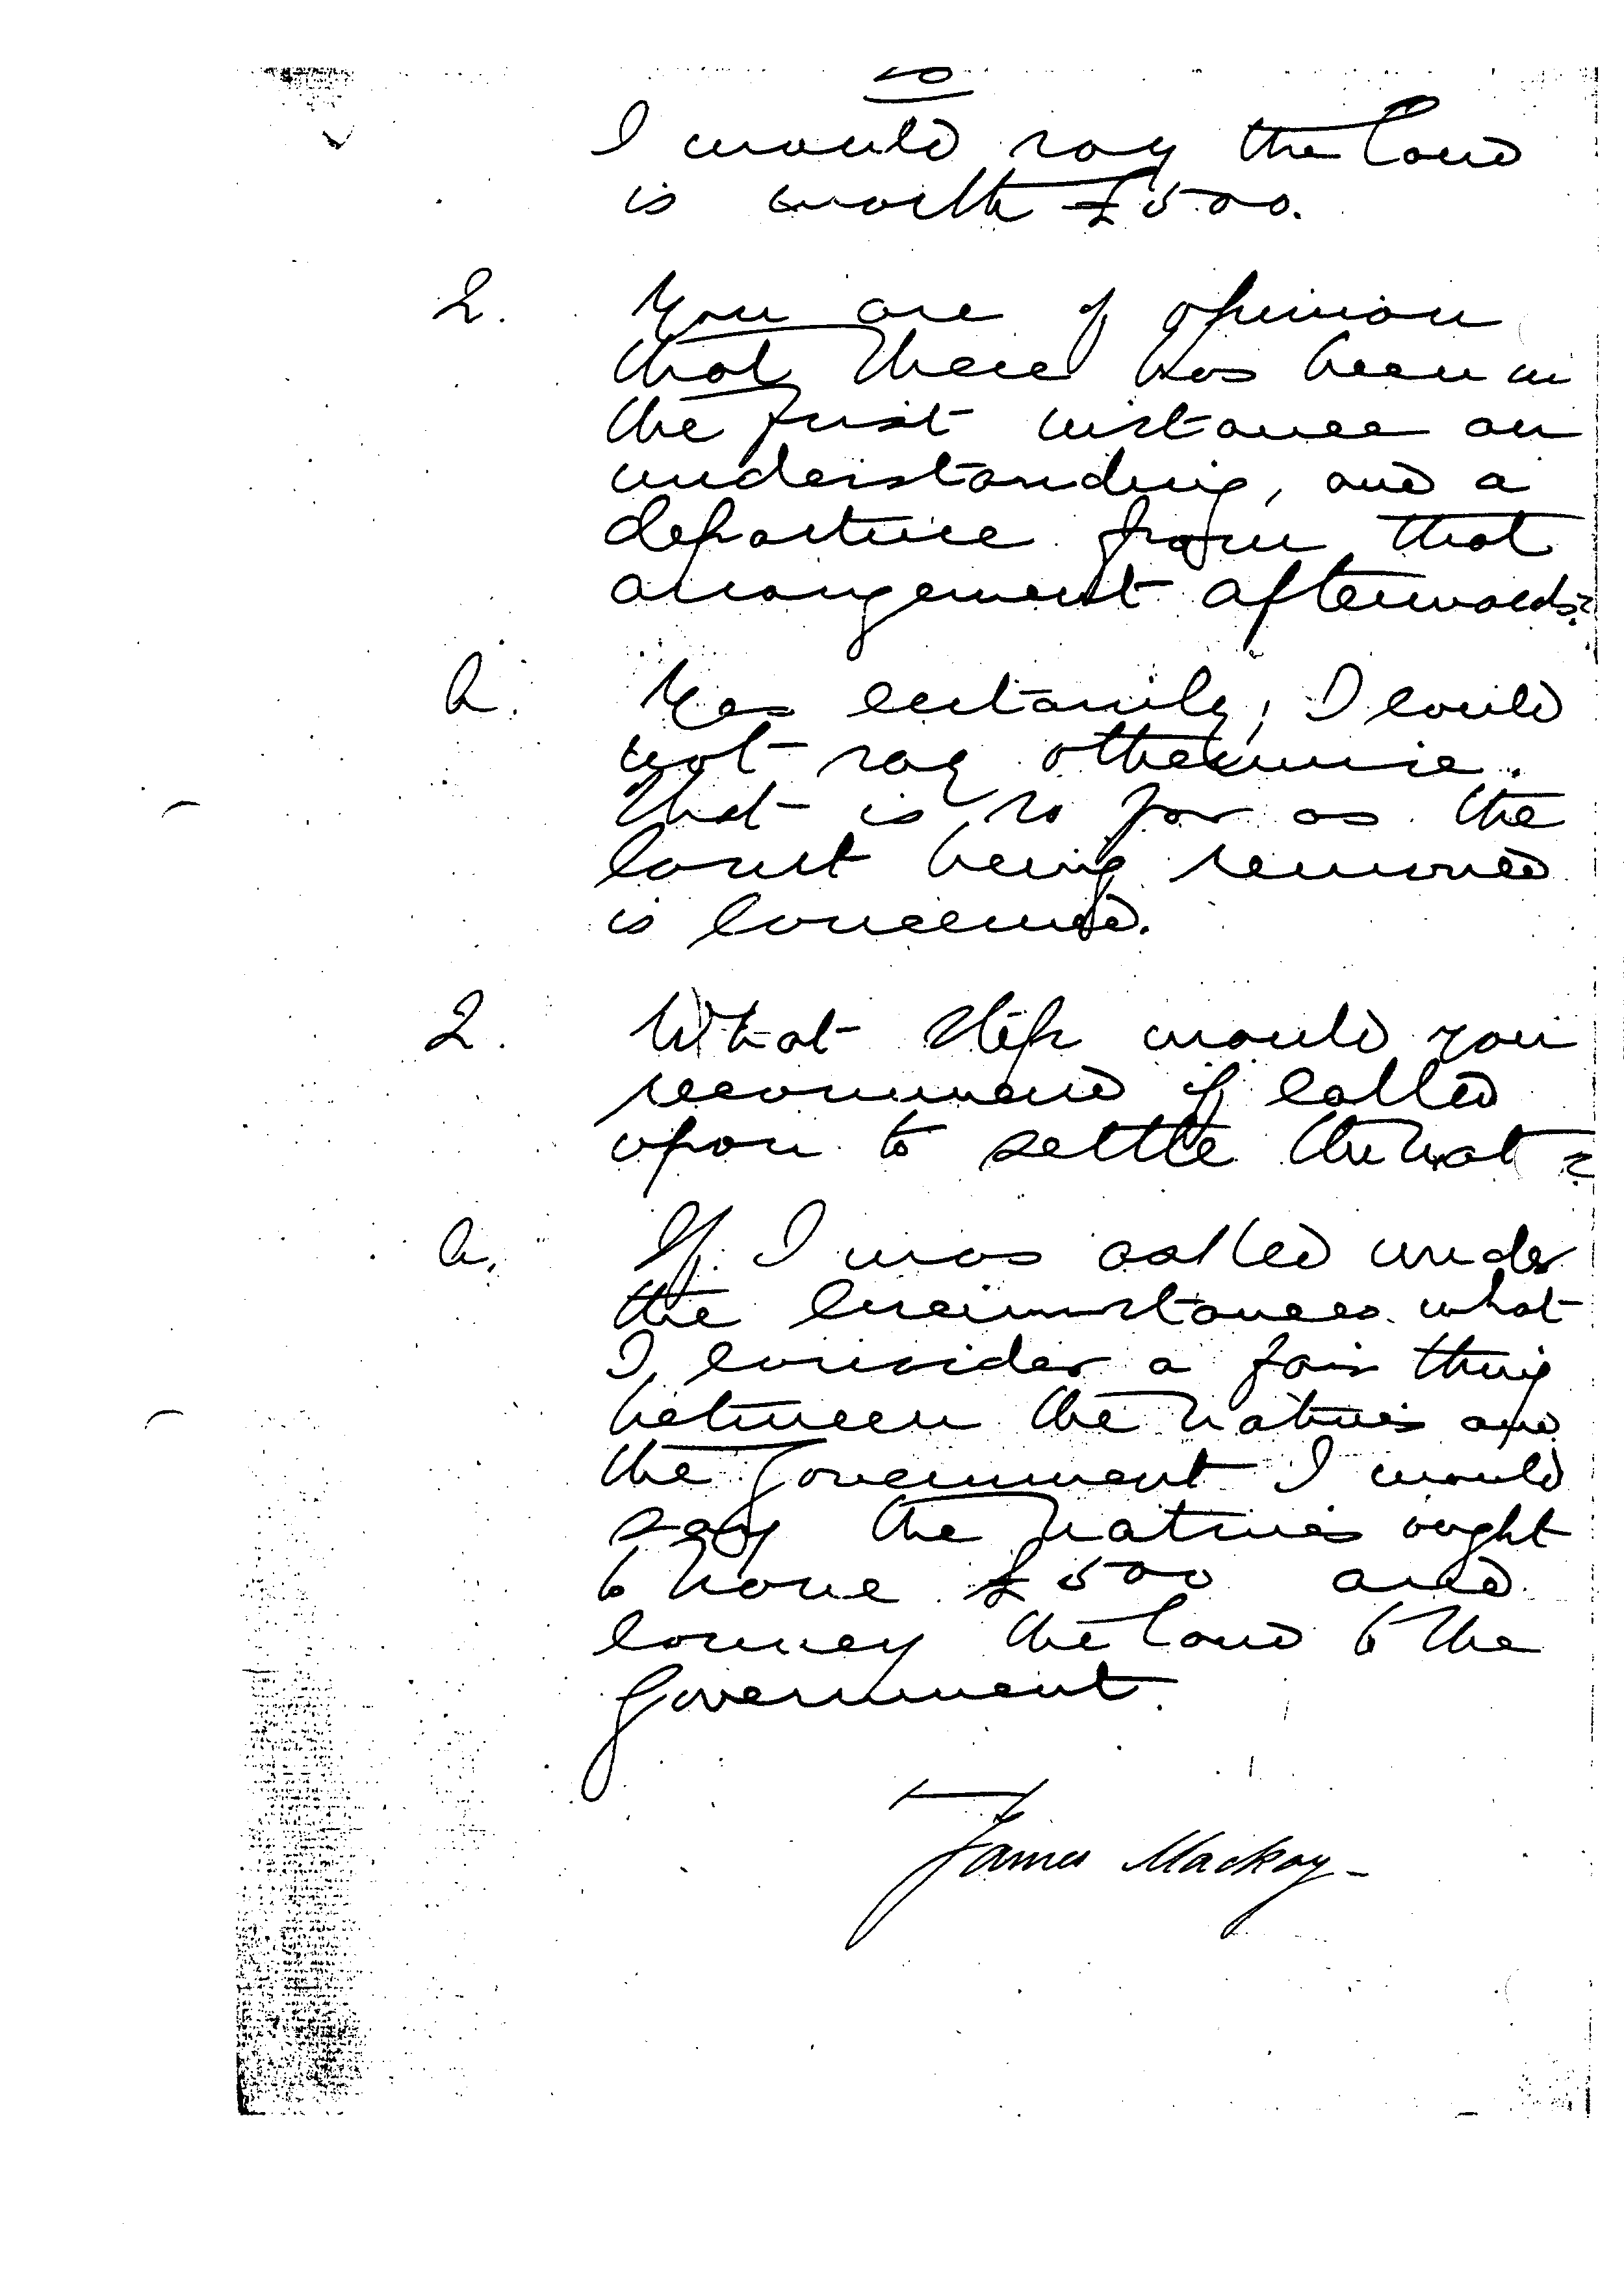 10
I would say the land
is worth £500.
Q. You are of opinion
that there has been in
the first instance an
understanding, and a
departure from that
arrangement afterwards?
A. Yes certainly, I could
not say otherwise.
That is so far as the
Court being removed
is concerned.
Q. What step would you
recommend if called
upon to settle
A. If I was called under
the circumstances what
I consider a fair thing
between the Natives and
the Government I would
say the Natives ought
to have £500 and
convey the land to the
Government.
James Mackay